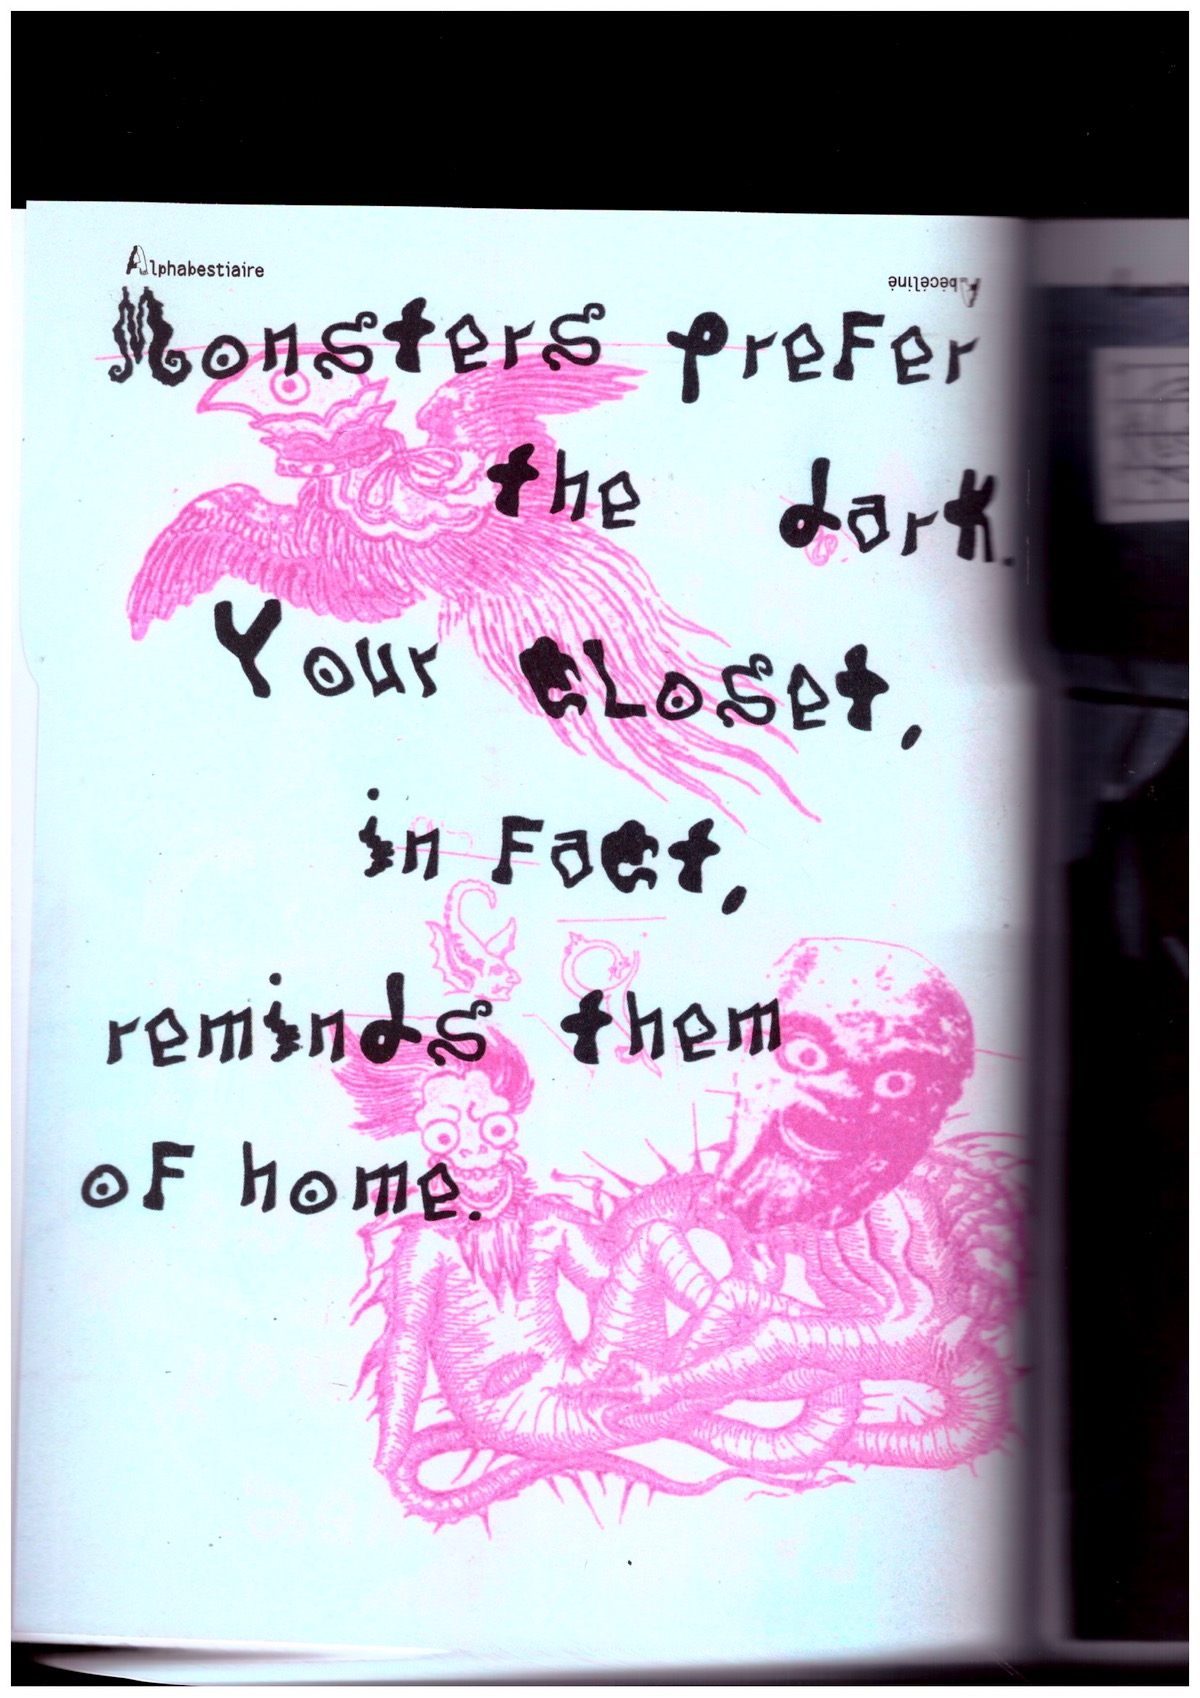 Alphabestiaire
Abécéliné
Monsters prefer
the dark.
Your closet,
in fact,
reminds them
of home.